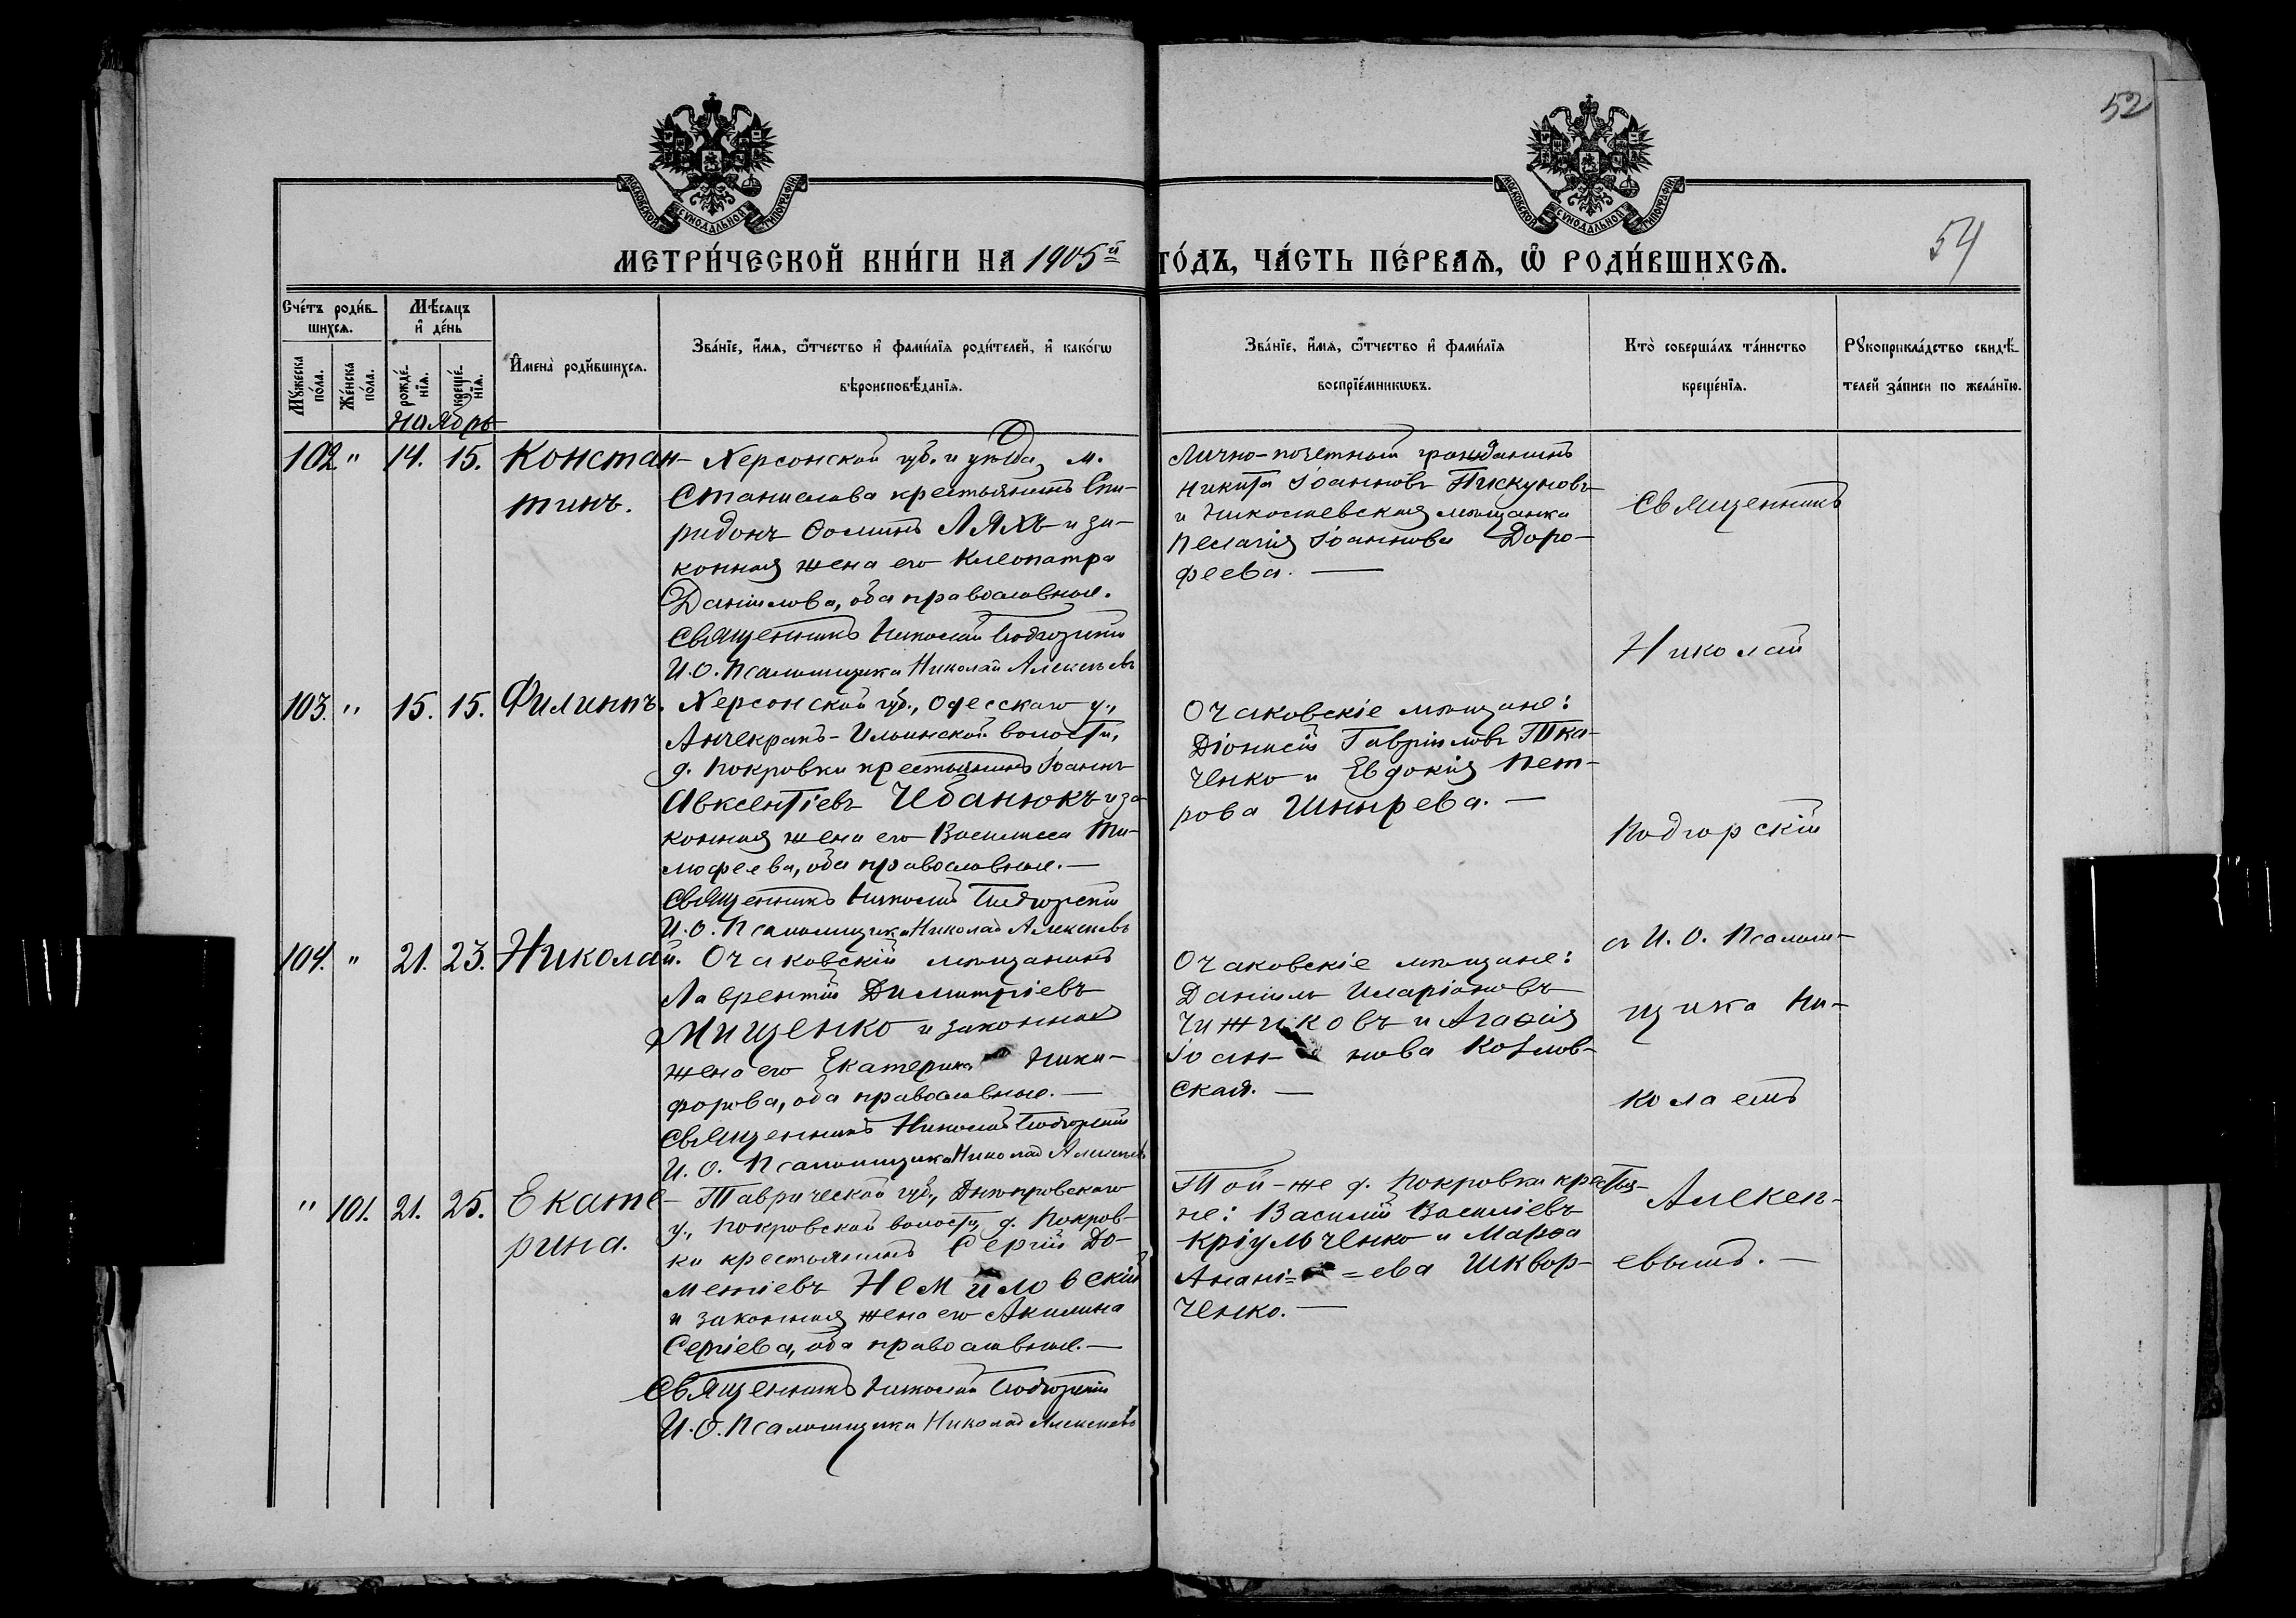 52
МОСКОВСКОЙ СУНОДАЛЬНОЙ ТИПОГРАФІИ
МОСКОВСКОЙ СУНОДАЛЬНОЙ ТИПОГРАФІИ
54
МЕТРИ́ЧЕСКОЙ КНИ́ГИ НА 1905й ГО́ДЪ, ЧА́СТЬ ПЕ́РВАѦ, Ѡ҆ РОДИ́ВШИХСѦ.
Сче́тъ роди́в-
шихсѧ.
Мѣ́сѧцъ
и҆ де́нь
Мꙋ́жеска по́ла.
Же́нска по́ла.
рожде́-
нїѧ.
креще́-
нїѧ.
И҆мена̀ роди́вшихсѧ.
Зва́нїе, и҆́мѧ, ѻ҆́тчество и҆ фами́лїѧ роди́телей, и҆ како́гѡ
вѣроисповѣ́данїѧ.
Зва́нїе, и҆́мѧ, ѻ҆́тчество и҆ фами́лїѧ
воспрїе́мникѡвъ.
Кто̀ соверша́лъ та́инство
креще́нїѧ.
Рꙋкоприкла́дство свидѣ́-
телей за́писи по жела́нїю.
Ноябрь
102 " 14. 15. Констан-
тинъ.
Херсонской губ. и уѣзда, м.
Станислава крестьянинъ Спи-
ридонъ Ѳоминъ ЛЯХЪ и за-
конная жена его Клеопатра
Даніилова, оба православные.
Священникъ Николай Подгорскій
И.О. Псаломщика Николай Алексѣевъ
Лично-почетный гражданинъ
Никита Іоанновъ Пискуновъ
и Николаевская мѣщанка
Пелагія Іоаннова Доро-
феева. —
103. " 15. 15. Филиппъ.
Херсонской губ., Одесскаго у.,
Анчекракъ-Ильинской волости,
д. Покровки крестьянинъ Іоаннъ
Авксентіевъ Чебанюкъ и за-
конная жена его Василисса Ти-
мофеева, оба православные. —
Священникъ Николай Подгорскій
И.О. Псаломщика Николай Алексѣевъ
Очаковскіе мѣщане:
Діонисій Гавріиловъ Тка-
ченко и Евдокія Пет-
рова Шнырева. —
104. " 21. 23. Николай.
Очаковскій мѣщанинъ
Лаврентій Димитріевъ
Мищенко и законная
жена его Екатерина Ники-
форова, оба православные. —
Священникъ Николай Подгорскій
И.О. Псаломщика Николай Алексѣевъ
Очаковскіе мѣщане:
Даніилъ Иларіоновъ
Чижиковъ и Агаѳія
Іоан-нова Козлов-
ская. —
" 101. 21. 25. Екате-
рина.
Таврической губ., Днѣпровскаго
у., Покровской волости, д. Покров-
ки крестьянинъ Сергій До-
метіевъ Немиловскій
и законная жена его Акилина
Сергіева, оба православные. —
Священникъ Николай Подгорскій
И.О. Псаломщика Николай Алексѣевъ
Той-же д. Покровки крестья-
не: Василій Василіевъ
Кріульченко и Марѳа
Анані= =ева Шквор-
ченко. —
Священникъ
Николай
Подгорскій
съ И.О. Псалом-
щика Ни-
колаемъ
Алексѣ-
евымъ. —